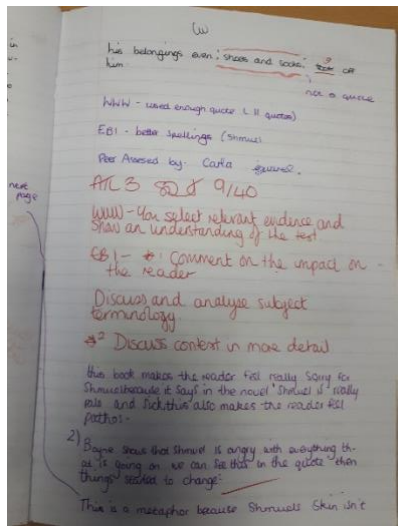 CW
his belongings even 'shoes and socks' took off
him.
not a quote
WWW - used enough quote (11 quotes)
EBI - better spellings (Shmuel
Peer Assessed by: Carla
next
page
ATL 3 9/40
WWW - You select relevant evidence and
show an understanding of the text.
EBI - *1 Comment on the impact on
the reader
Discuss and analyse subject
terminology.
*2 Discuss context in more detail
this book makes the reader feel really sorry for
Shmuel because it says in the novel 'Shmuel is really
pale and sick, this also makes the reader feel
pathos.
2) Boyne shows that Shmuel is angry with everything th-
at is going on. we can see this in the quote 'then
things started to change'
This is a metaphor because Shmuels Skin isn't